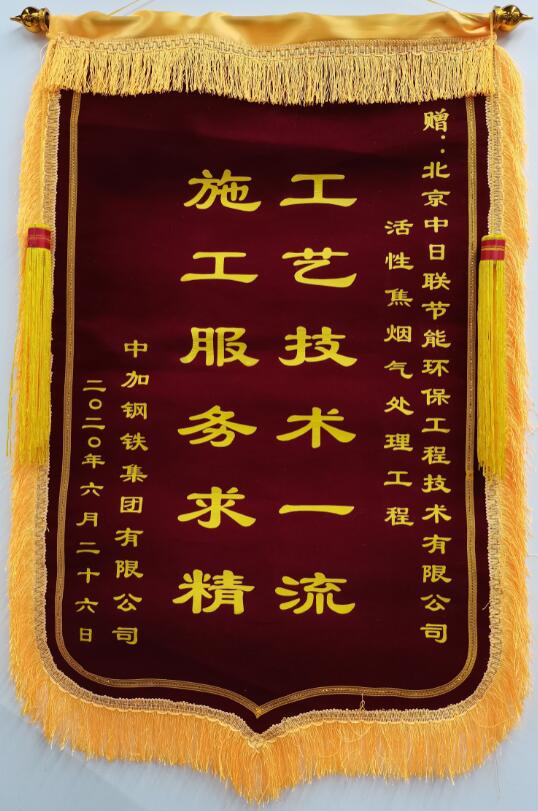 赠：北京中日联节能环保工程技术有限公司
活性焦烟气处理工程
工艺技术一流
施工服务求精
中加钢铁集团有限公司
二〇二〇年六月二十六日